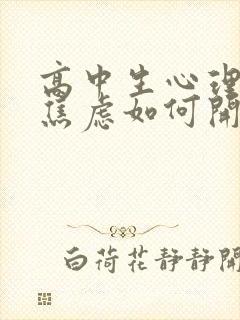 高中生心理
焦虑如何開
白荷花静静開